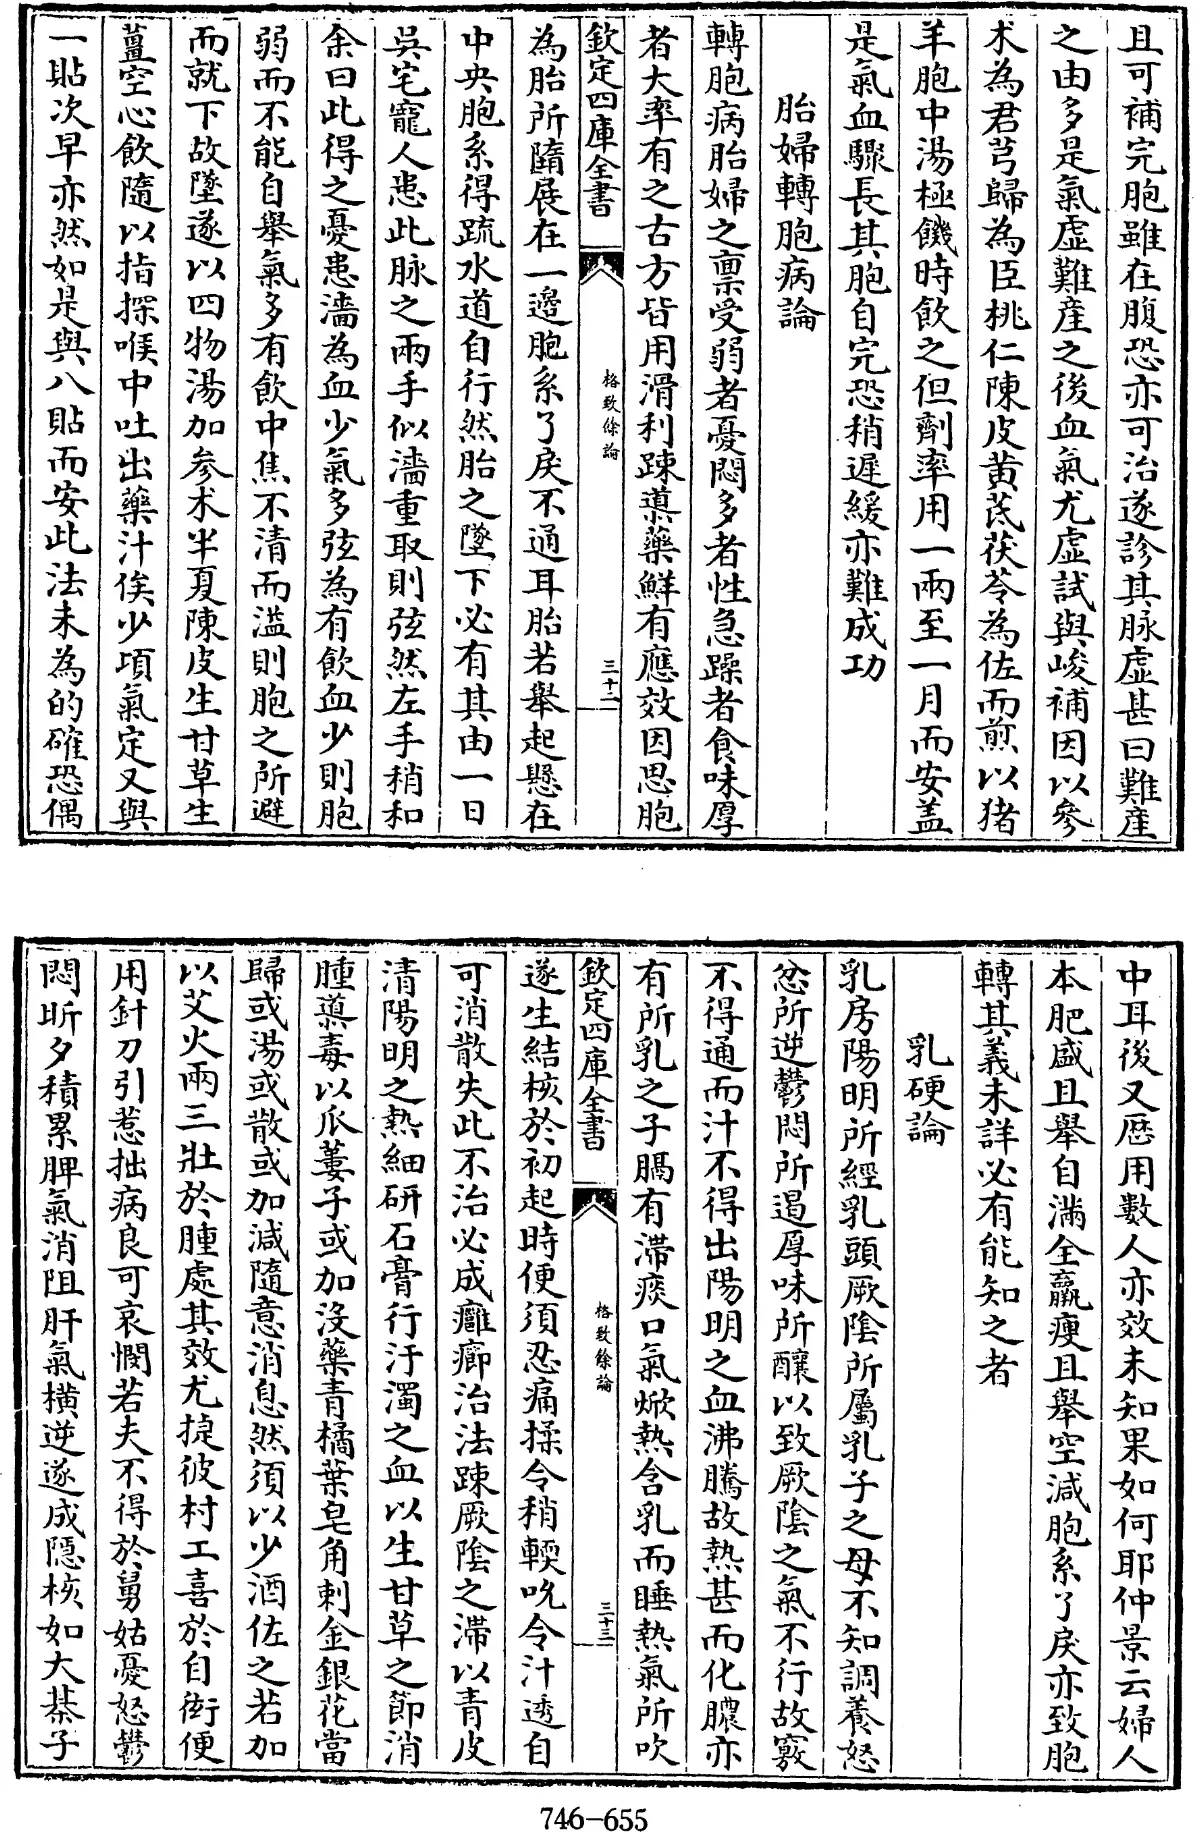 且可補完胞雖在腹恐亦可治遂診其脉虛甚曰難産
之由多是氣虛難産之後血氣尤虛試與峻補因以參
术為君芎歸為臣桃仁陳皮黃芪茯苓為佐而煎以猪
羊胞中湯極饑時飲之但劑率用一兩至一月而安蓋
是氣血驟長其胞自完恐稍遲緩亦難成功
胎婦轉胞病論
轉胞病胎婦之禀受弱者憂悶多者性急躁者食味厚
者大率有之古方皆用滑利踈導藥鮮有應效因思胞
欽定四庫全書
格致餘論
三十二
為胎所墮展在一邊胞系了戾不通耳胎若舉起懸在
中央胞系得疏水道自行然胎之墜下必有其由一日
吳宅寵人患此脉之兩手似濇重取則弦然左手稍和
余曰此得之憂患濇為血少氣多弦為有飲血少則胞
弱而不能自舉氣多有飲中焦不清而溢則胞之所避
而就下故墜遂以四物湯加參术半夏陳皮生甘草生
薑空心飲隨以指探喉中吐出藥汁俟少項氣定又與
一貼次早亦然如是與八貼而安此法未為的確恐偶
中耳後又歴用數人亦效未知果如何耶仲景云婦人
本肥盛且舉自滿全羸瘦且舉空減胞系了戾亦致胞
轉其義未詳必有能知之者
乳硬論
乳房陽明所經乳頭厥陰所屬乳子之母不知調養怒
忿所逆鬱悶所遏厚味所釀以致厥陰之氣不行故竅
不得通而汁不得出陽明之血沸騰故熱甚而化膿亦
有所乳之子膈有滯痰口氣焮熱含乳而睡熱氣所吹
欽定四庫全書
格致餘論
三十三
遂生結核於初起時便須忍痛揉令稍輭吮令汁透自
可消散失此不治必成癰癤治法踈厥陰之滯以青皮
清陽明之熱細研石膏行汙濁之血以生甘草之節消
腫導毒以瓜蔞子或加沒藥青橘葉皂角刺金銀花當
歸或湯或散或加減隨意消息然須以少酒佐之若加
以艾火兩三壯於腫處其效尤捷彼村工喜於自衒便
用針刀引惹拙病良可哀憫若夫不得於舅姑憂怒鬱
悶昕夕積累脾氣消阻肝氣橫逆遂成隱核如大棊子
746-655